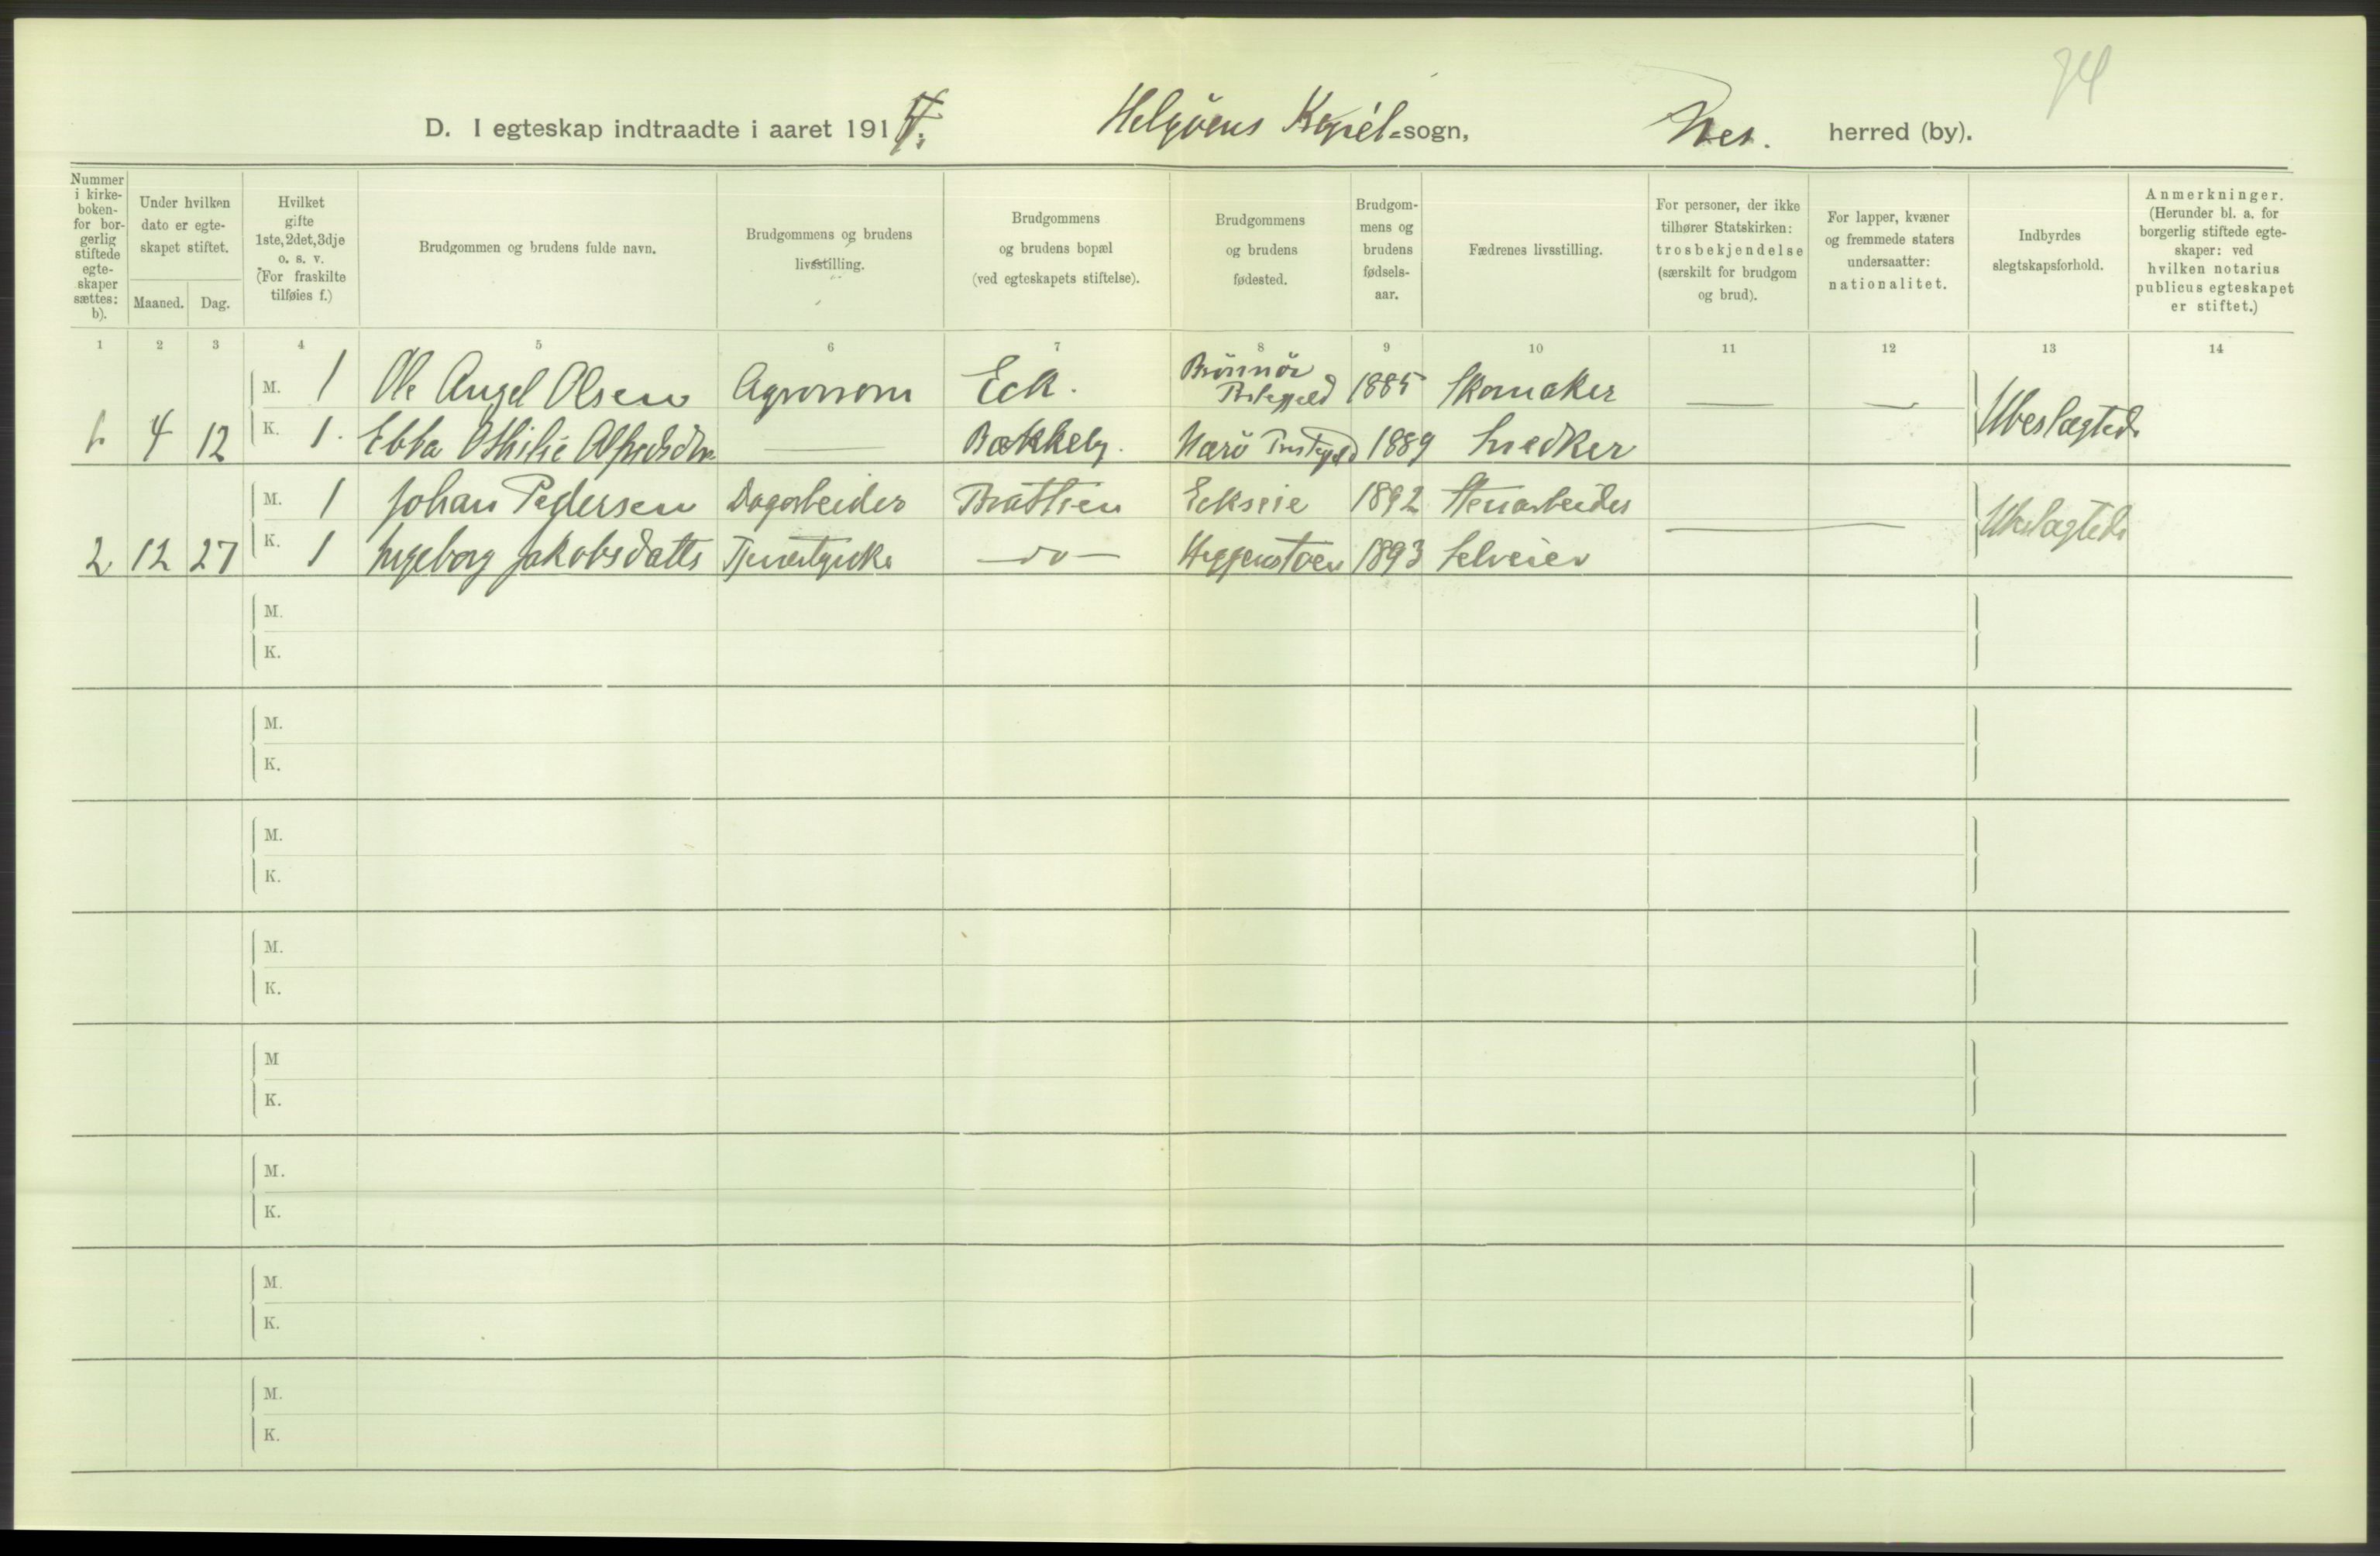 74
D. I egteskap indtraadte i aaret 1914. Helgöens Kapel-sogn, Nes. herred (by).
Nummer i kirke-boken- for bor-gerlig stiftede egte-skaper sættes: b).
Under hvilken dato er egte-skapet stiftet.
Maaned. Dag.
Hvilket gifte 1ste, 2det, 3dje o. s. v. (For fraskilte tilføies f.)
Brudgommen og brudens fulde navn.
Brudgommens og brudens livsstilling.
Brudgommens og brudens bopæl (ved egteskapets stiftelse).
Brudgommens og brudens fødested.
Brudgom-mens og brudens fødsels-aar.
Fædrenes livsstilling.
For personer, der ikke tilhører Statskirken: trosbekjendelse (særskilt for brudgom og brud).
For lapper, kvæner og fremmede staters undersaatter: nationalitet.
Indbyrdes slegtskapsforhold.
Anmerkninger. (Herunder bl. a. for borgerlig stiftede egte-skaper: ved hvilken notarius publicus egteskapet er stiftet.)
1 2 3 4 5 6 7 8 9 10 11 12 13 14
M. 1 Ole Angel Olsen Agronom Eck. Brönnö Prstegjeld 1885 Skomaker — —
1. 4 12 K. 1. Ebba Othilie Alfredsdtr — Bækkeby. Nærö Prstegjeld 1889 Snedker Ubeslægtede
M. 1 Johan Pedersen Dagarbeider Brattlien Eckseie 1892 Stenarbeider —
2 12 27 K. 1 Ingeborg Jakobsdatter Tjenestepike —do— Heggenstoen 1893 Selveier Ubeslægtede
M.
K.
M.
K.
M.
K.
M.
K.
M
K.
M.
K.
M.
K.
M.
K.